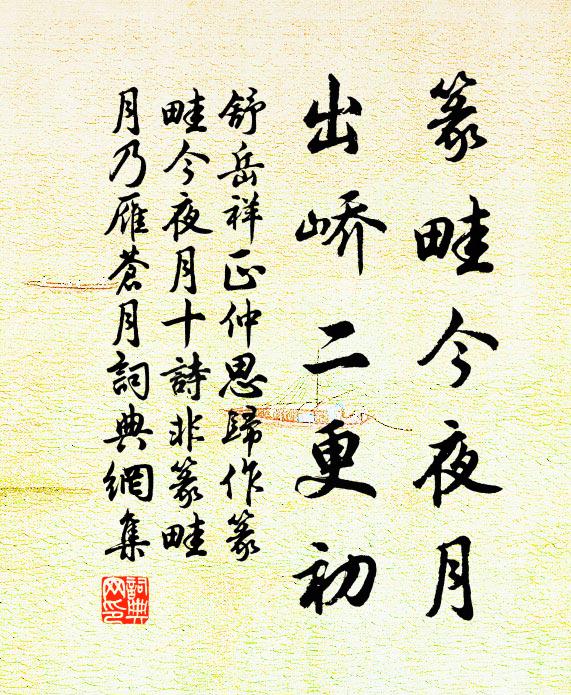 篆畦今夜月
出嶠二更初
舒岳祥正仲思歸作篆
畦今夜月十詩非篆畦
月乃雁蒼月詞典網集
詞典網印